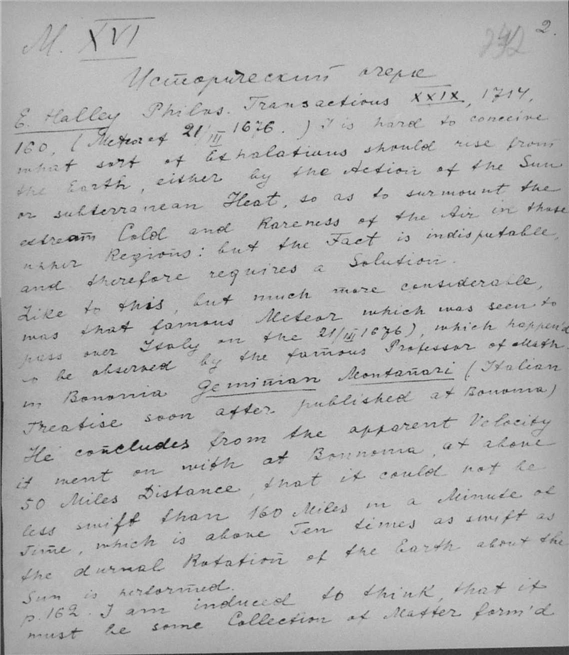 M. XVI 2.
Исторический очерк
E. Halley Philos. Transactious XXIX, 1714,
160. (Meteor of 21/III 1676.) I is hard to conceive
what sort of Exhalations should rise from
the Earth, either by the Action of the Sun
or subterranean Heat, so as to surmount the
extream Cold and Rareness of the Air in those
upper Regions: but the Fact is indisputable,
and therefore requires a Solution.
Like to this, but much more considerable,
was that famous Meteor which was seen to
pass over Italy on the 21/III 1676), which happen'd
to be observed by the famous Professor of Math.
in Bononia Geminian Montanari (Italian
Treatise soon after published at Bononia)
He concludes from the apparent Velocity
it went on with at Bonnonia, at above
50 Miles Distance, that it could not be
less swift than 160 Miles in a Minute of
Time, which is above Ten times as swift as
the durnal Rotation of the Earth about the
Sun is performed.
p. 162. I am induced to think, that it
must be some Collection of Matter form'd